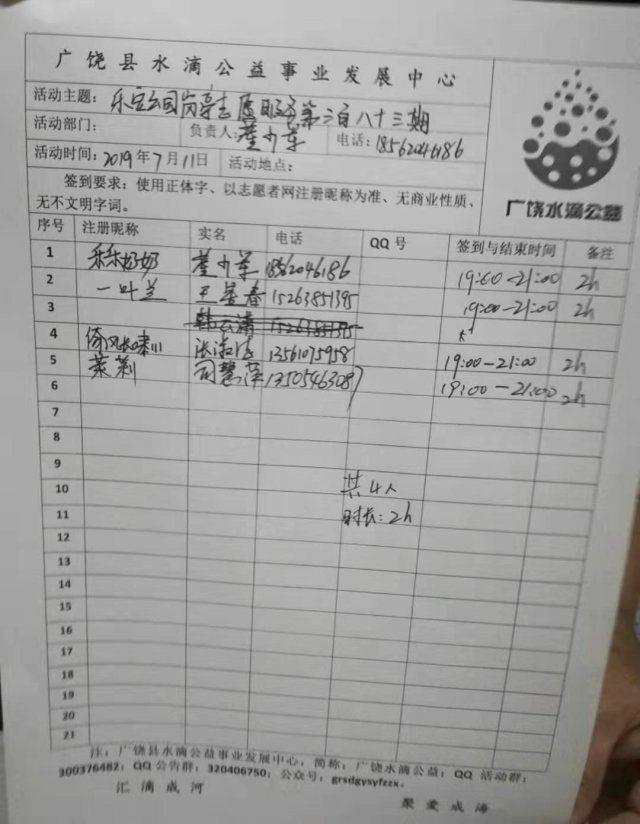 广饶县水滴公益事业发展中心
活动主题：乐安公园岗亭志愿服务第二百八十三期
活动部门： 负责人： 电话：18562046186
活动时间：2019年7月11日 活动地点：
签到要求：使用正体字、以志愿者网注册昵称为准、无商业性质、
无不文明字词。
广饶水滴公益
序号 注册昵称 实名 电话 QQ号 签到与结束时间 备注
1 乐乐奶奶 18562046186 19:00-21:00 2h
2 一叶兰 王 春 15263851395 19:00-21:00 2h
3 15263851395
4 13561075958 19:00-21:00 2h
5 茉莉 司慧萍 13505463087 19:00-21:00 2h
6
7
8
9
10 共4人
11 时长：2h
12
13
14
15
16
17
18
19
20
21
注：广饶县水滴公益事业发展中心，简称：广饶水滴公益；QQ 活动群：
300376482；QQ 公告群：320406750；公众号：grsdgysyfzzx。
汇滴成河 聚爱成海